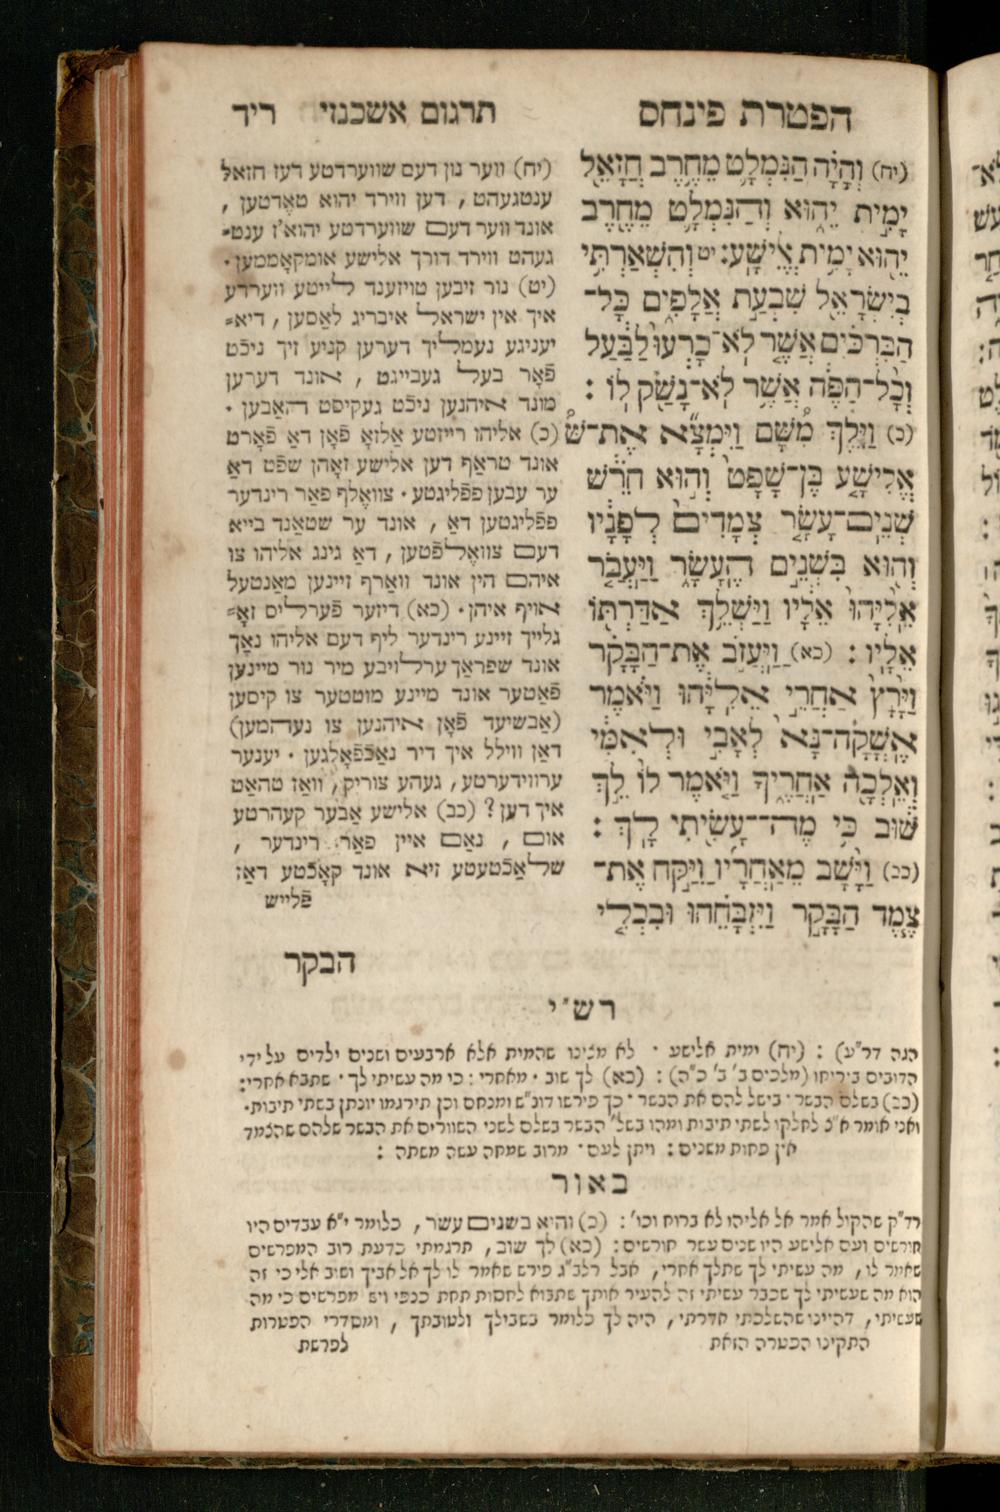 הפטרת פינחס
תרגום אשכנזי
ריד
(יח) וְהָיָ֗ה הַנִּמְלָ֛ט מֵחֶ֥רֶב חֲזָאֵ֖ל
יָמִ֣ית יֵה֑וּא וְהַנִּמְלָ֛ט מֵחֶ֥רֶב
יֵה֖וּא יָמִ֥ית אֱלִישָֽׁע: יט וְהִשְׁאַרְתִּ֥י
בְיִשְׂרָאֵ֖ל שִׁבְעַ֣ת אֲלָפִ֑ים כָּל־
הַבִּרְכַּ֗יִם אֲשֶׁ֤ר לֹֽא־כָרְעוּ֙ לַבַּ֔עַל
וְכָ֨ל־הַפֶּ֔ה אֲשֶׁ֥ר לֹֽא־נָשַׁ֖ק לֽוֹ :
(כ) וַיֵּ֣לֶךְ מִ֠שָּׁם וַיִּמְצָ֞א אֶת־
אֱלִישָׁ֤ע בֶּן־שָׁפָט֙ וְה֣וּא חֹרֵ֔שׁ
שְׁנֵים־עָשָׂ֤ר צְמָדִים֙ לְפָנָ֔יו
וְה֖וּא בִּשְׁנֵ֣ים הֶעָשָׂ֑ר וַיַּעֲבֹ֤ר
אֵלִיָּ֙הוּ֙ אֵלָ֔יו וַיַּשְׁלֵ֥ךְ אַדַּרְתּ֖וֹ
אֵלָֽיו : (כא) וַיַּעֲזֹ֣ב אֶת־הַבָּקָ֗ר
וַיָּ֙רָץ֙ אַחֲרֵ֣י אֵֽלִיָּ֔הוּ וַיֹּ֗אמֶר
אֶשְּׁקָה־נָּא֙ לְאָבִ֣י וּלְאִמִּ֔י
וְאֵלְכָ֖ה אַחֲרֶ֑יךָ וַיֹּ֤אמֶר לוֹ֙ לֵ֣ךְ
שׁ֔וּב כִּ֥י מֶה־עָשִׂ֖יתִי לָֽךְ :
(כב) וַיָּ֨שָׁב מֵאַחֲרָ֜יו וַיִּקַּ֣ח אֶת־
צֶ֧מֶד הַבָּקָ֣ר וַיִּזְבָּחֵ֗הוּ וּבִכְלִ֤י
הבקר
(יח) ווער נון דעם שווערדטע דעז חזאל
ענטגעהט , דען ווירד יהוא טאֶדטען ,
אונד ווער דעם שווערדטע יהוא'ז ענט-
געהט ווירד דורך אלישע אומקאָממען .
(יט) נור זיבען טויזענד לייטע ווערדע
איך אין ישראל איבריג לאַסען , דיא-
יעניגע נעמליך דערען קניע זיך ניכֿט
פֿאָר בעל געבייגט , אונד דערען
מונד איהנען ניכֿט געקיסט האַבען .
(כ) אליהו רייזטע אַלזאָ פֿאָן דאַ פֿאָרט
אונד טראַף דען אלישע זאָהן שפֿט דאַ
ער עבען פפֿליגטע . צוואֶלף פאַר רינדער
פפֿליגטען דאַ , אונד ער שטאַנד בייא
דעם צוואֶלפֿטען , דאַ גינג אליהו צו
איהם הין אונד וואַרף זיינען מאַנטעל
אויף איהן . (כא) דיזער פֿערליס זאָ-
גלייך זיינע רינדער ליף דעם אליהו נאָך
אונד שפראַך ערלויבע מיר נור מיינען
פֿאַטער אונד מיינע מוטטער צו קיסען
(אַבשיעד פֿאָן איהנען צו נעהמען)
דאַן וויל​ל איך דיר נאַכֿפֿאָלגען . יענער
ערווידערטע , געהע צוריק , וואַז טהאַט
איך דען ? (כב) אלישע אַבער קעהרטע
אום , נאַם איין פאַר רינדער ,
שלאַכֿטעטע זיא אונד קאָכֿטע דאַז
פֿלייש
רש"י
הגה דר"ע) : (יח) ימית אלישע . לא מצינו שהמית אלא ארבעים ושנים ילדים על ידי
הדובים ביריחו (מלכים ב' ב' כ"ה) : (כא) לך שוב . מאחרי : כי מה עשיתי לך . שתבא אחרי :
(כב) בשלם הבשר . בישל להם את הבשר . כך פירשו דונ"ש ומנחם וכן תירגמו יונתן בשתי תיבות .
ואני אומר א"כ לחלקו לשתי תיבות ומהו בשל' הבשר בשלם לשני השוורים את הבשר שלהם שהצמד
אין פחות משנים : ויתן לעם . מרוב שמחה עשה משתה :
באור
רד"ק שהקול אמר אל אליהו לא ברוח וכו' : (כ) והיא בשנים עשר , כלומר י"א עבדים היו
חורשים ועם אלישע היו שנים עשר חורשים : (כא) לך שוב , תרגמתי כדעת רוב המפרשים
שאמר לו , מה עשיתי לך שתלך אחרי , אבל רלב"ג פירש שאמר לו לך אל אביך ושוב אלי כי זה
הוא מה שעשיתי לך שכבר עשיתי זה להעיר אותך שתבוא לחסות תחת כנפי ויש מפרשים כי מה
שעשיתי , דהיינו שהשלכתי אדרתי , היה לך כלומר בשבילך ולטובתך , ומסדרי הפטרות
התקינו הפטרה הזאת
לפרשת